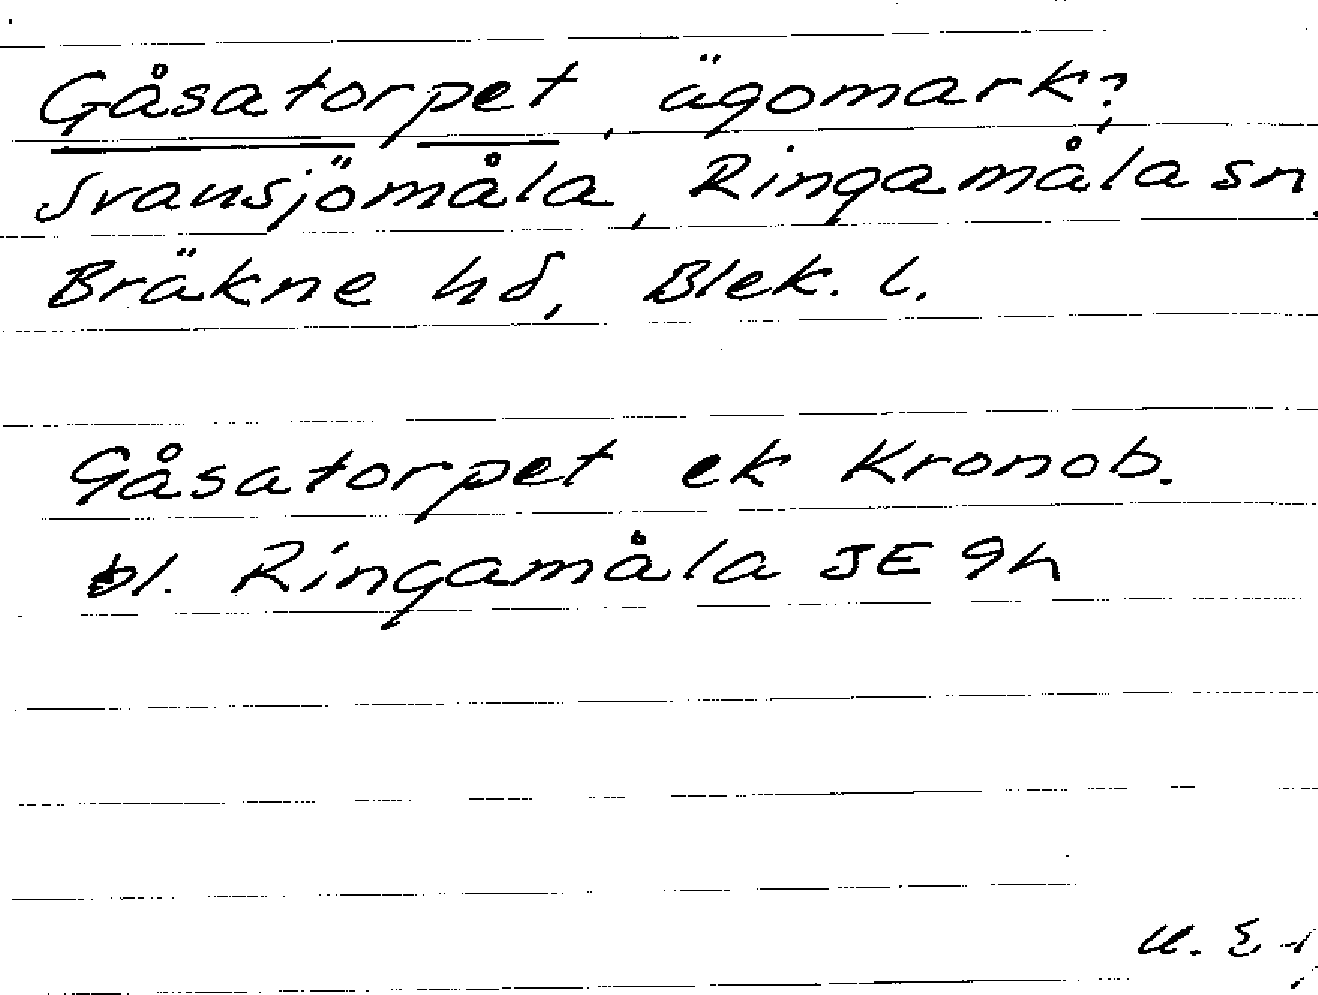 Gåsatorpet, ägomark?,
Svansjömåla, Ringamåla sn,
Bräkne hd, Blek. l.
Gåsatorpet ek Kronob.
bl. Ringamåla JE 9h